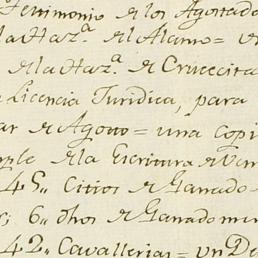 Testimonio de los Agostade
la Haz.ª del Alamo = u
de la Haz.ª de Crucecita
Licencia Juridica, para
ar de Agosto = una copi
mple de la Escritura de Ven
45,, Citios de Ganado
6,, dhos de Ganado men
42,, Cavallerias = un De